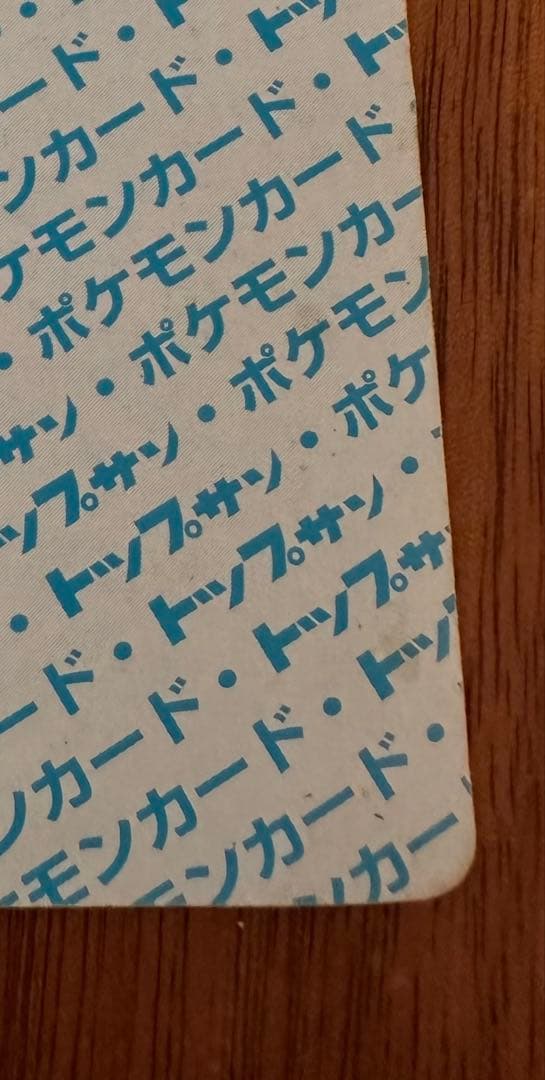 ード・ト
ンカード・トッ
ケモンカード・ト
・ポケモンカード
サン・ポケモンカー
ップサン・ポケモン
・トップサン・ポケ
ード・トップサン・
ンカード・トップサ
モンカード・トッ
モンカード・
ンカー